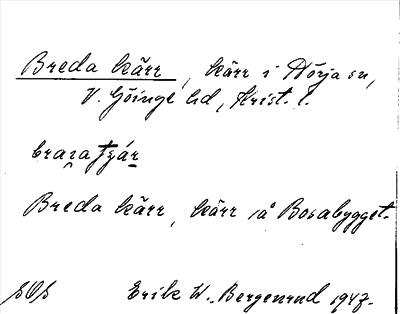 Breda kärr, kärr i Nörja sn,
V. Göinge hd, Krist. l.
Breda kärr, kärr på Bosabygget.
Erik W. Bergenrud 1947.